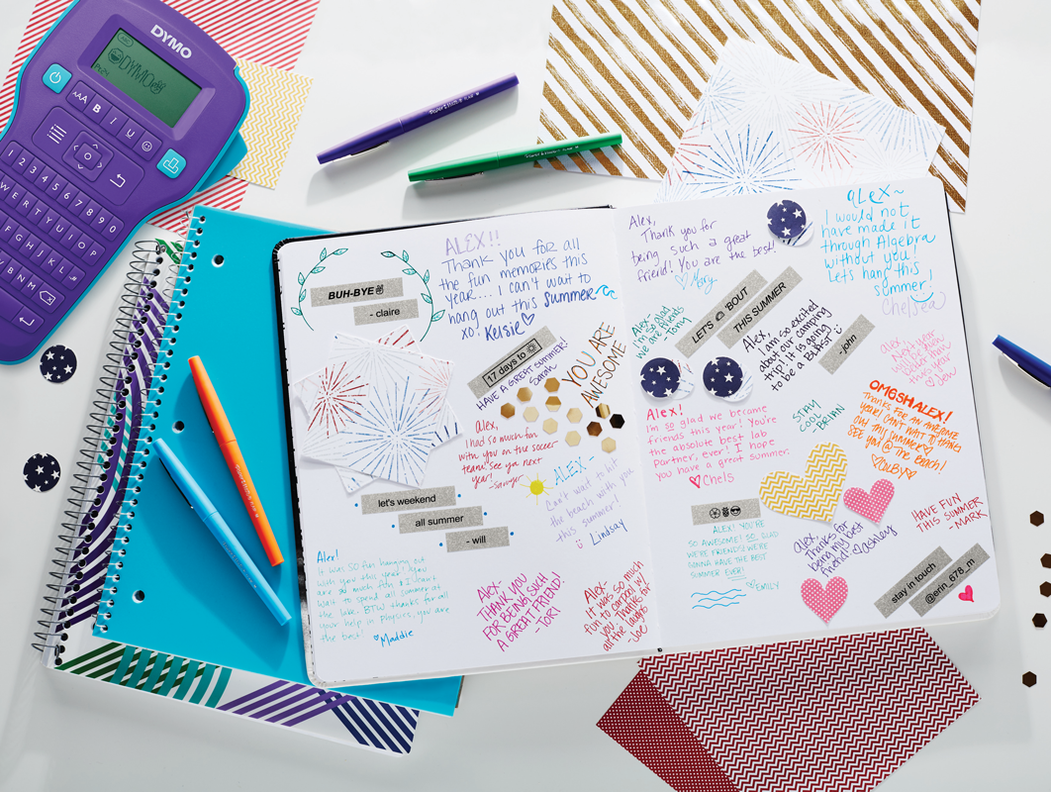 DYMO
ABC
DYMO
AAA B I U
1 2 3 4 5 6 7 8 9 0
WERTYUIOP
FGHJKL
VBNM
BUH-BYE
- claire
ALEX!!
Thank you for all
the fun memories this
year... I can't wait to
hang out this summer
xo! Kelsie
17 days to
HAVE A GREAT SUMMER!
Sarah
YOU ARE
AWESOME
Alex,
I had so much fun
with you on the soccer
team! See ya next
year!
-Sawyer
let's weekend
all summer
- will
ALEX -
Can't wait to hit
the beach with you
this summer!
Lindsay
Alex!
It was so fun hanging out
with you this year! You
are so much fun, I can't
wait to spend all summer on
the lake. BTW thanks for all
your help in Physics, you are
the best!
Maddie
ALEX-
THANK YOU
FOR BEING SUCH
A GREAT FRIEND!
-TORI
Alex-
It was so much
fun to carpool w/
you. Thanks for
all the laughs
-Joe
Alex,
Thank you for
being such a great
friend! You are the best!
Mary
ALEX~
I would not
have made it
through Algebra
without you!
Let's hang this
summer!
Chelsea
Alex-
I'm so glad
we are friends
-Tony
LET'S 'BOUT
THIS SUMMER
Alex,
I am so excited
about our camping
trip! It is going
to be a BLAST!
-john
Alex,
Jen
OMGSH ALEX!
Thanks for an awesome
year! Can't wait to hang
out this summer
See you @ the beach!
Alex!
I'm so glad we became
friends this year! You're
the absolute best lab
partner, ever! I hope
you have a great summer.
Chels
STAY
COOL
BRIAN
ALEX! YOU'RE
SO AWESOME! SO GLAD
WE'RE FRIENDS! WE'RE
GONNA HAVE THE BEST
SUMMER EVER!
EMILY
Alex
Thanks for
being my best
friend!
Ashley
HAVE FUN
THIS SUMMER
-MARK
stay in touch
@erin_678_m